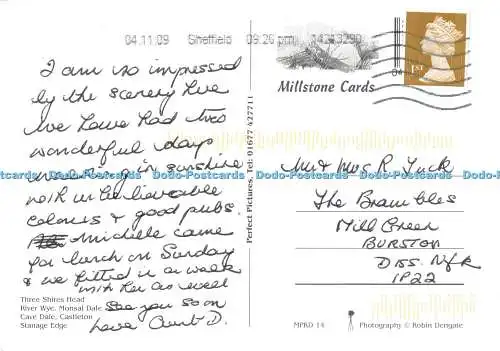 04.11.09 Sheffield 09:26 pm 14213290
Millstone Cards
1ST
04
I am so impressed
by the scenery here
We have had two
wonderful days
walking in sunshine
with unbelievable
colours & good pubs.
Michelle came
for lunch on Sunday
& we fitted in a walk
with her as well
See you soon
Love Aunt D.
Three Shires Head
River Wye, Monsal Dale
Cave Dale, Castleton
Stanage Edge
Perfect Pictures, Tel: 01677 427711
Mr & Mrs R Tuck
The Brambles
Mill Green
BURSTON
DISS. Nfk
IP22
MPKD 14 Photography © Robin Dengate
Dodo-Postcards Dodo-Postcards Dodo-Postcards Dodo-Postcards Dodo-Postcards